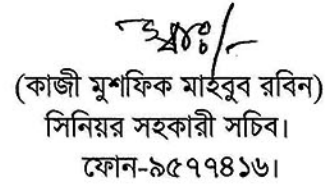 (কাজী মুশফিক মাহবুব রবিন)
সিনিয়র সহকারী সচিব।
ফোন-৯৫৭৭৪১৬।